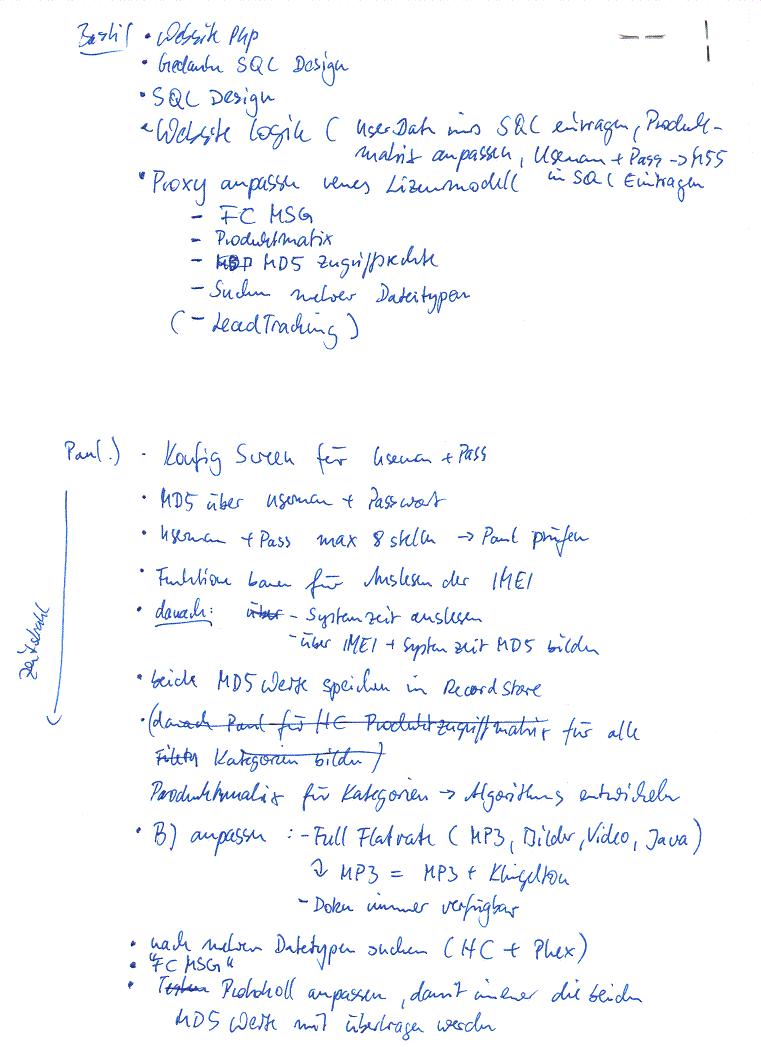 Basti • Website PHP
• Gedanken SQL Design
• SQL Design
• Website Logik ( UserDaten ins SQL eintragen, Produkt-
matrix anpassen, Usernam + Pass -> MD5
in SQL Eintragen
• Proxy anpassen neues Lizenzmodell
- FC MSG
- Produktmatix
- MD5 Zugriffsrechte
- Suchen mehrer Dateitypen
( - LeadTracking )
Paul.) • Konfig Screen für Usernam + Pass
• MD5 über usernam + Passwort
• Usernam + Pass max 8 stellen -> Paul prüfen
• Funktion bauen für Auslesen der IMEI
• danach: über - Systemzeit auslesen
- über IMEI + System zeit MD5 bilden
Zeitstrahl
• beide MD5 Werte speichern in Record Store
• (danach Paul für HC Produktzugriffmatrix für alle
Filetyp Kategorien bilden)
Produktmatix für Kategorien -> Algorithmus entwickeln
• B) anpassen : - Full Flatrate ( MP3, Bilder, Video, Java )
↳ MP3 = MP3 + Klingelton
- Doku immer verfügbar
• nach mehren Dateitypen suchen ( HC + Phex )
• "FC MSG"
• Testen Protokoll anpassen, damit immer die beiden
MD5 Werte mit übertragen werden